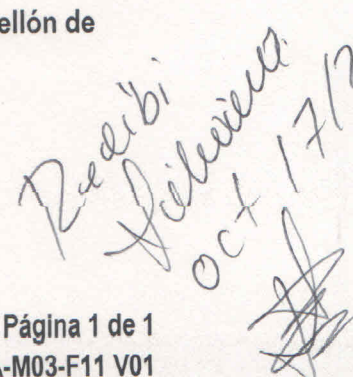 ellón de
Recibi
oct 17/2
Página 1 de 1
A-M03-F11 V01